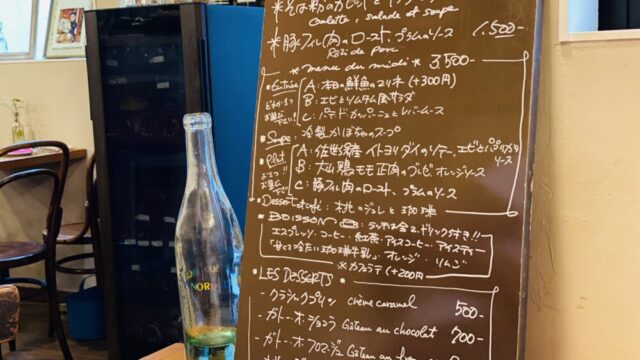 *そば粉のガレット
galette, salade et soupe
*豚フィレ肉のロースト、プラムのソース 1.500-
Rôti de porc
* menu du midi * 3.500-
Entrée
A: 本日の鮮魚のマリネ (+300円)
B: エビとソムタム風サラダ
C: パテドカンパーニュとレバームース
Soupe: 冷製かぼちゃのスープ
Plat
A: 佐世保産イトヨリダイのソテー、エビと
ソース
B: 大山鶏モモ正肉のグリエ オレンジソース
C: 豚フィレ肉のロースト、プラムのソース
Dessert et café: 桃のジュレと珈琲
BOISSON ランチは全てドリンク付き!!
エスプレッソ・コーヒー・紅茶・アイスコーヒー・アイスティー
甘くて冷たい珈琲牛乳・オレンジ・りんご
※カフェラテ (+200円)
LES DESSERTS
- クラシックプリン crème caramel 500-
- ガトー・オ・ショコラ Gâteau au chocolat 700-
- ガトー・オ・フロマージュ Gâteau au
NOR